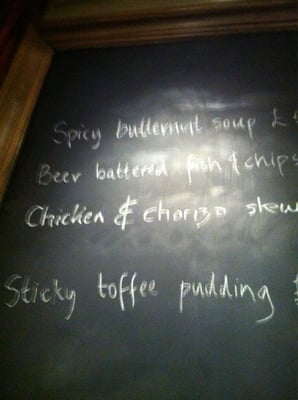 Spicy butternut soup £
Beer battered fish & chips
Chicken & chorizo skew
Sticky toffee pudding